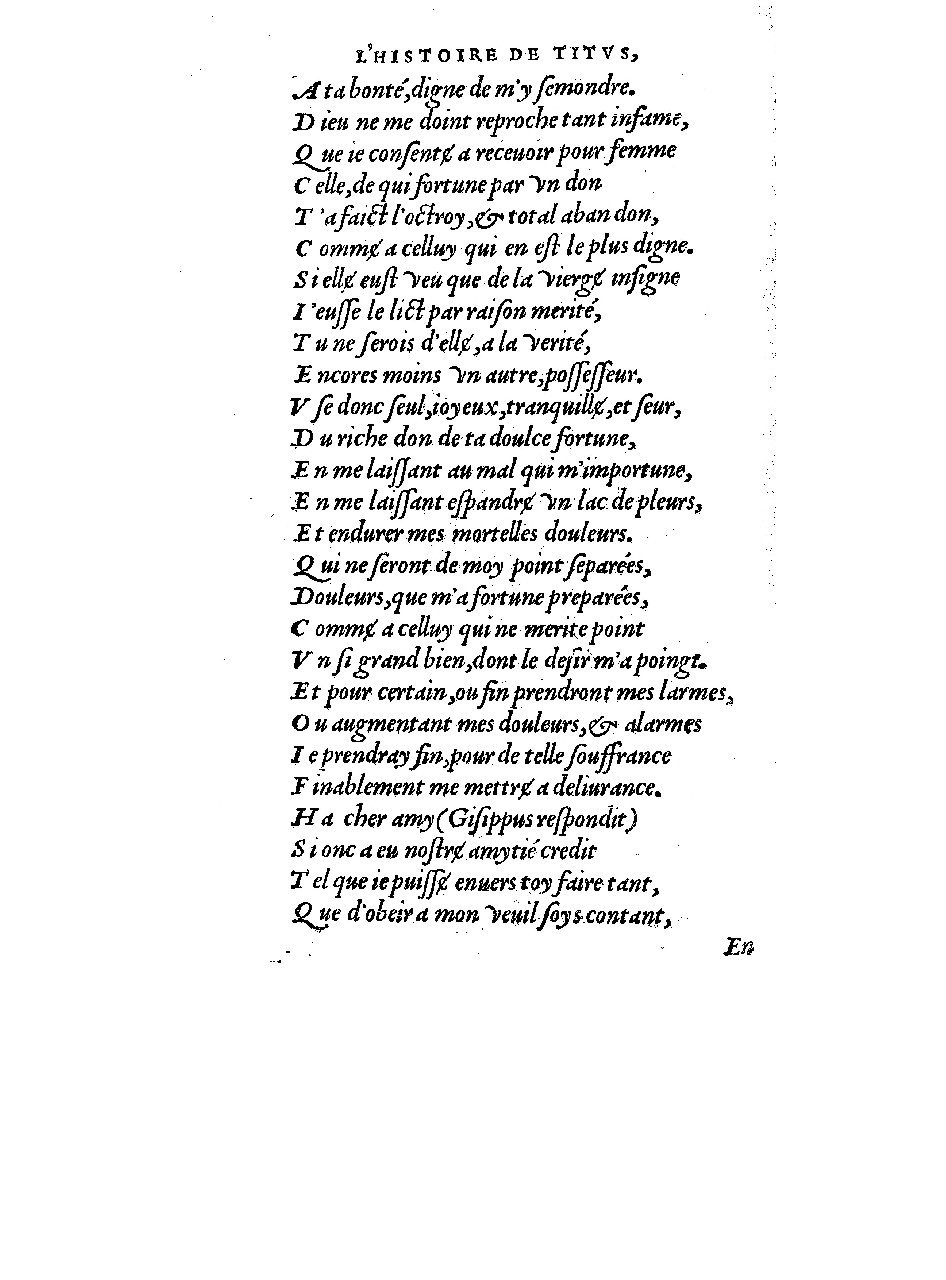 L'HISTOIRE DE TITVS,
A ta bonté, digne de m'y ſemondre.
Dieu ne me doint reproche tant infame,
Que ie conſentɇ a receuoir pour femme
Celle, de qui fortune par vn don
T'a faict l'octroy, & total abandon,
Commɇ a celluy qui en eſt le plus digne.
Si ellɇ euſt veu que de la viergɇ inſigne
I'euſſe le lict par raiſon merité,
Tu ne ſerois d'ellɇ, a la verité,
Encores moins vn autre, poſſeſſeur.
Vſe donc ſeul, ioyeux, tranquillɇ, et ſeur,
Du riche don de ta doulce fortune,
En me laiſſant au mal qui m'importune,
En me laiſſant eſpandrɇ vn lac de pleurs,
Et endurer mes mortelles douleurs.
Qui ne ſeront de moy point ſeparées,
Douleurs, que m'a fortune preparées,
Commɇ a celluy qui ne merite point
Vn ſi grand bien, dont le deſir m'a poingt.
Et pour certain, ou fin prendront mes larmes,
Ou augmentant mes douleurs, & alarmes
Ie prendray fin, pour de telle ſouffrance
Finablement me mettrɇ a deliurance.
Ha cher amy (Giſippus reſpondit)
Si onc a eu noſtrɇ amytié credit
Tel que ie puiſſɇ enuers toy faire tant,
Que d'obeir a mon veuil ſoys contant,
En